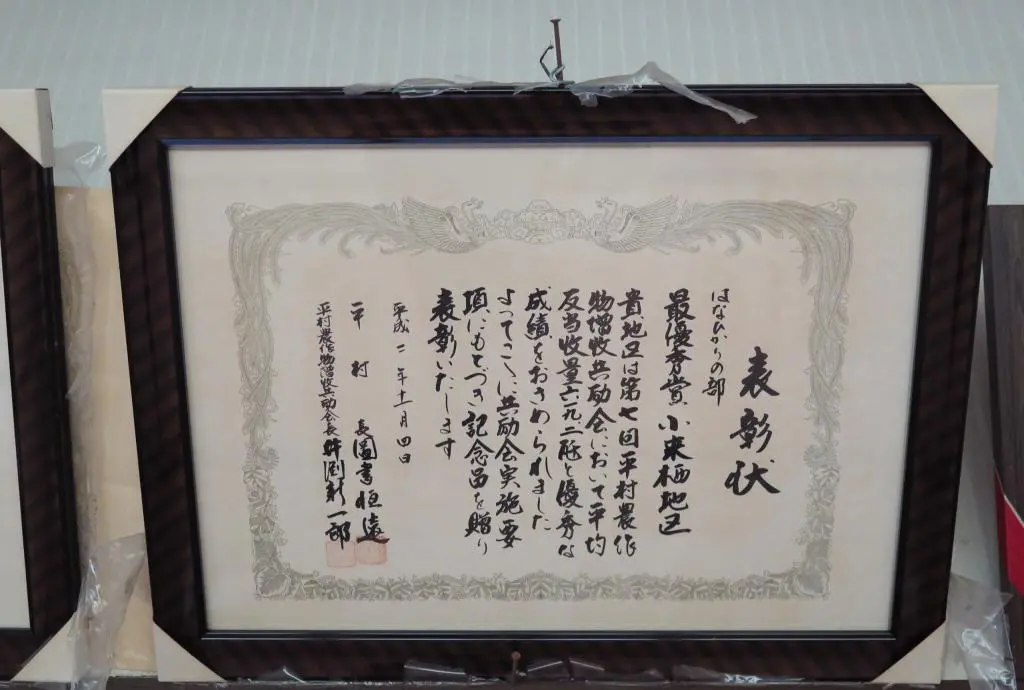 表彰状
はなひかりの部
最優秀賞 小来栖地区
貴地区は第七回平村農作
物増収共励会において平均
反当収量六一九、二瓩と優秀な
成績をおさめられました
よってここに共励会実施要
項にもとづき記念品を贈り
表彰いたします
平成二年十一月四日
平村長 図書恒遠
平村農作物増収共励会長